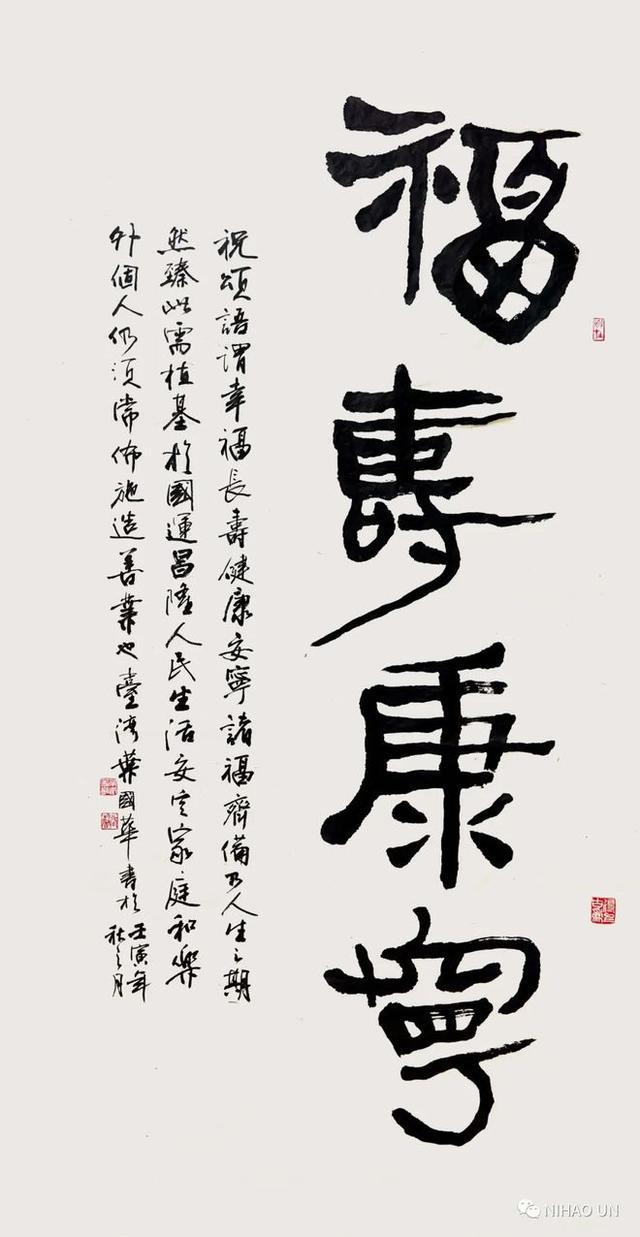 福壽康寧
祝頌語謂幸福長壽健康安寧諸福齊備乃人生之期
然臻此需植基於國運昌隆人民生活安定家庭和樂
外個人仍須常佈施造善業也臺灣葉國華書於
壬寅年
秋之月
NIHAO UN